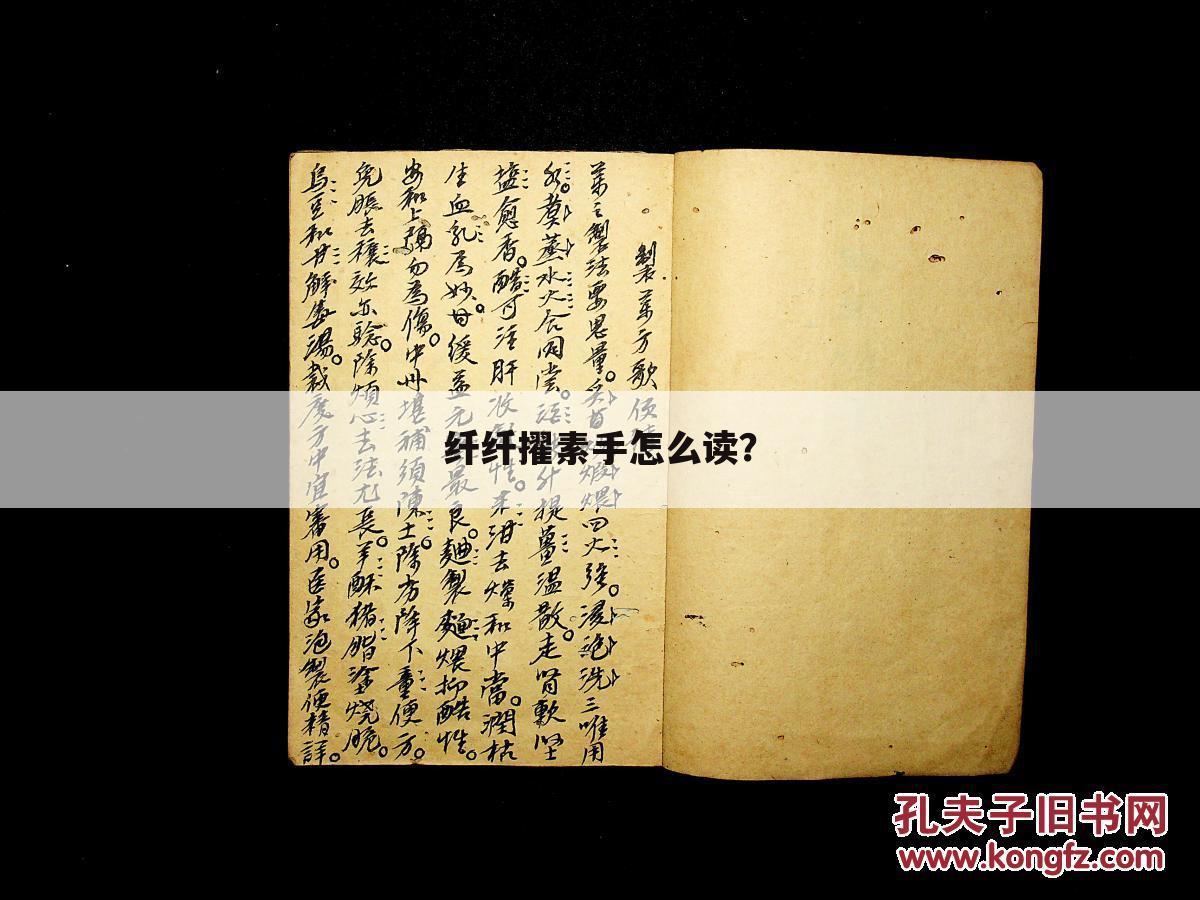 製藥方歌
藥之製法要思量。煅煨四火強。浸泡洗三唯用
水。煮蒸水火合同嘗。酒升提薑溫散。走腎軟堅
塩愈香。醋可注肝收性。米泔去燥和中當。潤枯
生血乳為妙。甘緩益元最良。麯製麵煨抑酷性。
安和上膈勿為傷。中州堪補須陳土除劣除下童便方。
免脹去穰效亦騐。除煩心去法尤長。羊酥猪脂塗燒脆。
烏豆和甘解毒湯。裁度方中宜審用。医家泡製便精詳。
纤纤擢素手怎么读?
孔夫子旧书网
www.kongfz.com